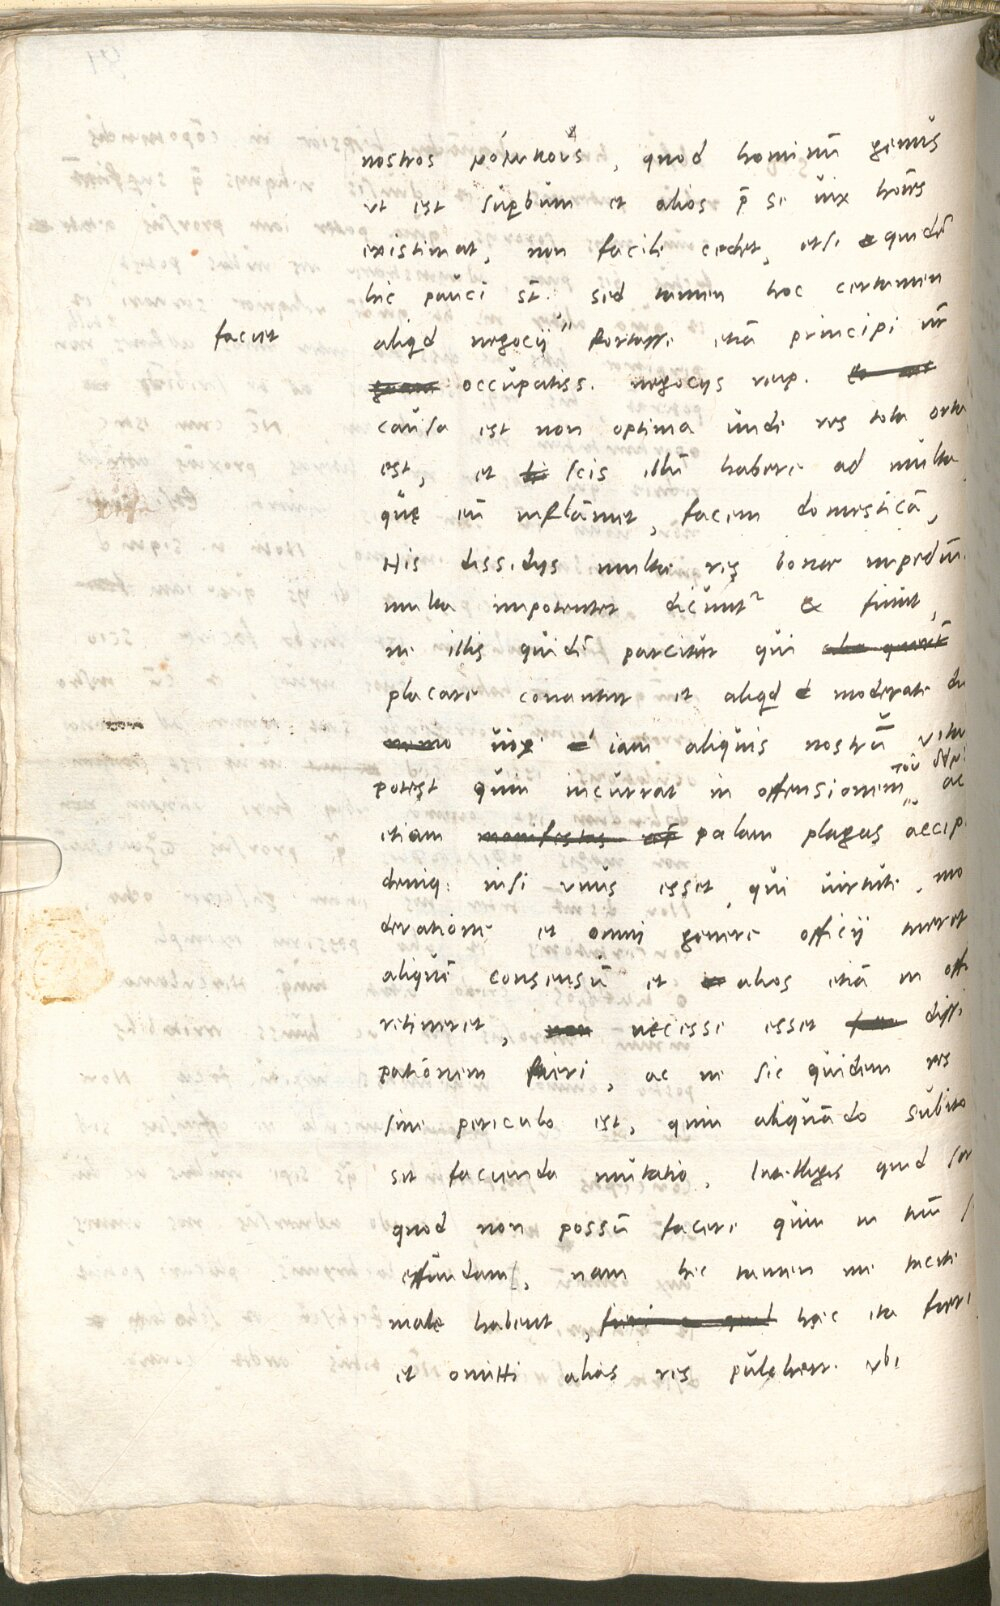 nostros νομικούς, quod hominū genus
ut est suꝑbum et alios p̄ se uix hoīes
existimat, non facile cedet, etsi equidē
hic pauci st̄. sed tamen hoc certamen
facuet
aliqd negocij fortasse etiā principi nr̄
occupatiss. negocijs reip.
causa est non optima unde res tota orta
est, et scis illū habere ad multa
quę eū inflāmet, facem domesticā,
His dissidijs multae res bonae impediū
multa impotenter dicunt² & fiunt,
ne illis quidē parcitur qui
placare conantur et aliqd moderate
uix iam aliquis nostrū vita
potest quin incurrat in offensionem τοῦ ac
etiam palam plagas accip
deniq: nisi vnus esset, qui uirtute, mo
deratione et omni genere officij tueret
aliquē consensū et alios etiā in offi
retineret, necesse esset dissi
pationem fieri, ac ne sic quidem res
sine periculo est, quin aliquādo subito
sit facienda mutatio. Intelligis quid
quod non possū facere quin in tuū
effundam, nam hic tamen me tacite
male habent, haec ita fieri
et omitti alias res pulcherr. vbi